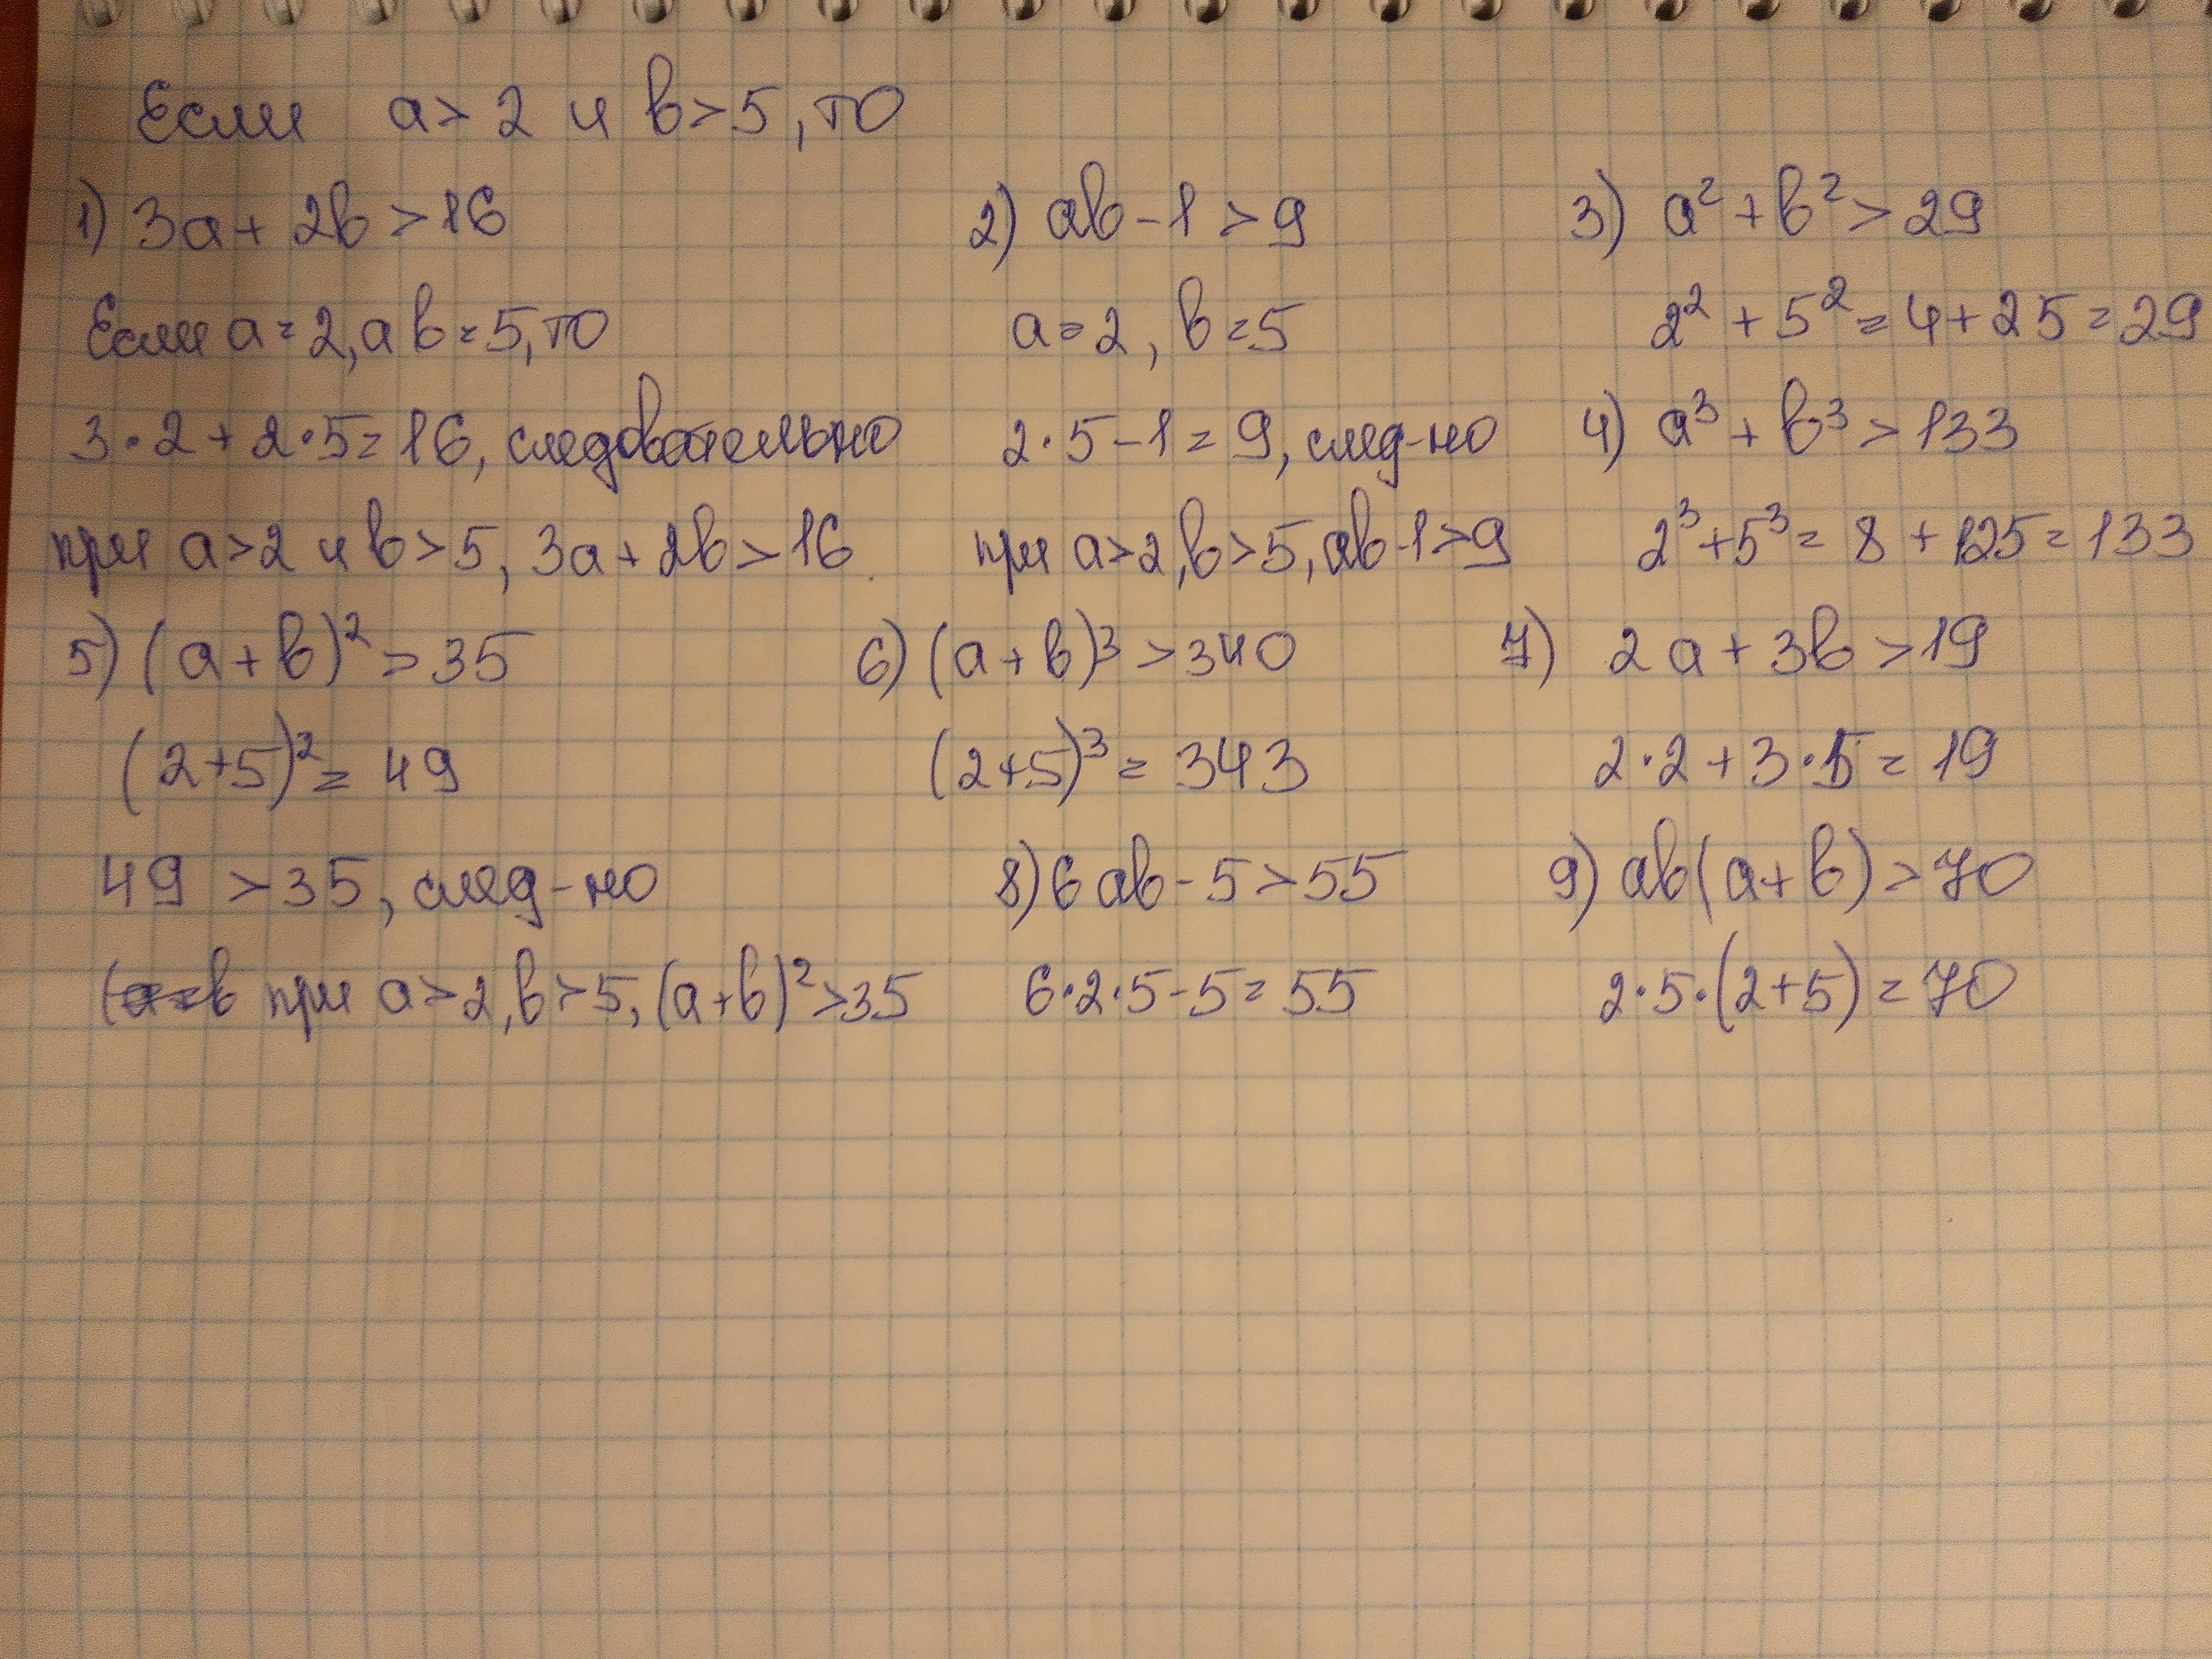 Если a > 2 и b > 5, то
1) 3a + 2b > 16
2) ab - 1 > 9
3) a² + b² > 29
Если a = 2, а b = 5, то
a = 2, b = 5
2² + 5² = 4 + 25 = 29
3·2 + 2·5 = 16, следовательно
2·5 - 1 = 9, след-но
4) a³ + b³ > 133
при a > 2 и b > 5, 3a + 2b > 16.
при a > 2, b > 5, ab - 1 > 9
2³ + 5³ = 8 + 125 = 133
5) (a + b)² > 35
6) (a + b)³ > 340
7) 2a + 3b > 19
(2 + 5)² = 49
(2 + 5)³ = 343
2·2 + 3·5 = 19
49 > 35, след-но
8) 6ab - 5 > 55
9) ab(a + b) > 70
при a > 2, b > 5, (a + b)² > 35
6·2·5 - 5 = 55
2·5·(2 + 5) = 70